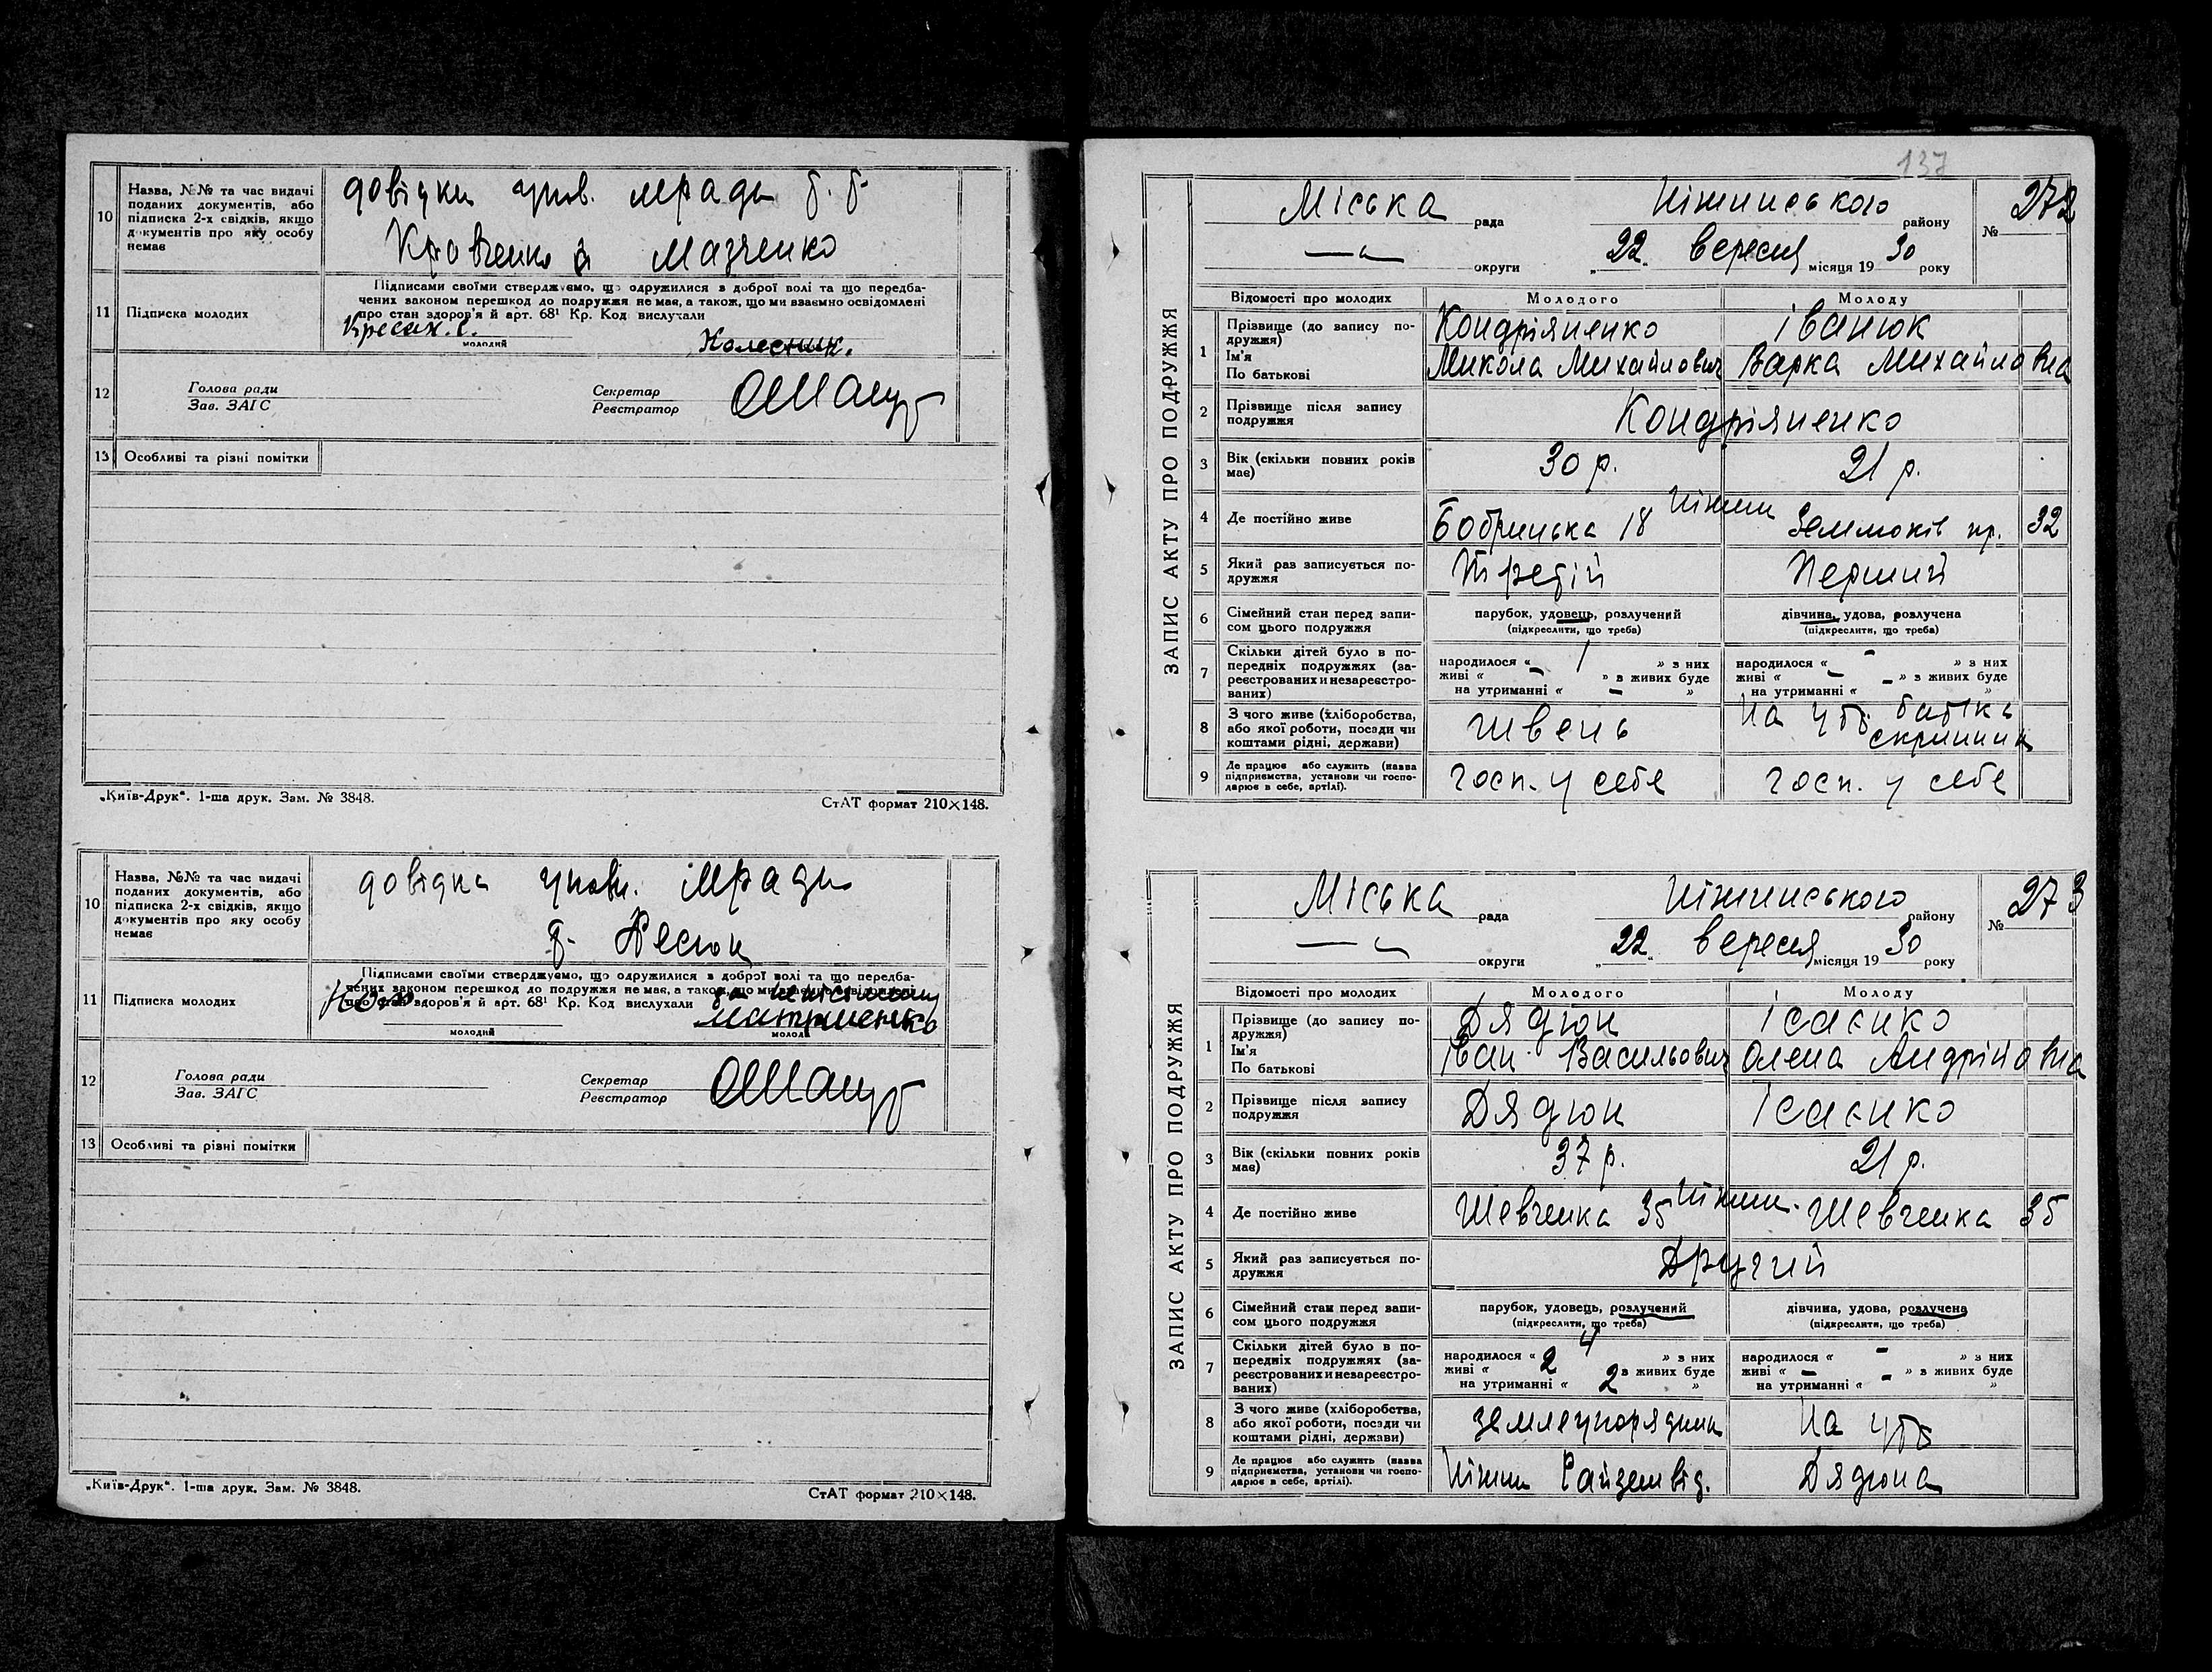 10 Назва, №№ та час видачі
поданих документів, або
підписка 2-х свідків, якщо
документів про яку особу
немає
довідки упов. мради т. т.
Кравченко й Мазченко
11 Підписка молодих
Підписами своїми стверджуємо, що одружилися з доброї волі та що передба-
чених законом перешкод до подружжя не має, а також, що ми взаємно освідомлені
про стан здоров'я й арт. 68¹ Кр. Код вислухали
молодий
Колесник.
12 Голова ради
Зав. ЗАГС
Секретар
Реєстратор
13 Особливі та різні помітки
„Київ-Друк“. 1-ша друк. Зам. № 3848.
СтАТ формат 210×148.
10 Назва, №№ та час видачі
поданих документів, або
підписка 2-х свідків, якщо
документів про яку особу
немає
довідка упов. мради
т.
11 Підписка молодих
Підписами своїми стверджуємо, що одружилися з доброї волі та що передба-
чених законом перешкод до подружжя не має, а також, що ми взаємно освідомлені
про стан здоров'я й арт. 68¹ Кр. Код вислухали
за неписьменну
молодий
молода
12 Голова ради
Зав. ЗАГС
Секретар
Реєстратор
13 Особливі та різні помітки
„Київ-Друк“. 1-ша друк. Зам. № 3848.
СтАТ формат 210×148.
137
ЗАПИС АКТУ ПРО ПОДРУЖЖЯ
Міська рада Ніжинського району № 272
— округи „22“ вересня місяця 1930 року
Відомості про молодих Молодого Молоду
1 Прізвище (до запису по-
дружжя)
Ім'я
По батькові
Кондріяненко Іванюк
Микола Михайлович Варка Михайловна
2 Прізвище після запису
подружжя
Кондріяненко
3 Вік (скільки повних років
має)
30 р. 21 р.
4 Де постійно живе
Ніжин
Бобрицька 18 пр. 32
5 Який раз записується по-
дружжя
Третій Перший
6 Сімейний стан перед запи-
сом цього подружжя
парубок, удовець, розлучений
(підкреслити, що треба)
дівчина, удова, розлучена
(підкреслити, що треба)
7 Скільки дітей було в по-
передніх подружжях (за-
реєстрованих и незареєстро-
ваних)
народилося « 1 » з них
живі « - » в живих буде
на утриманні « - »
народилося « - » з них
живі « - » з живих буде
на утриманні « - »
8 З чого живе (хліборобства,
або якої роботи, посади чи
коштами рідні, держави)
швець
На утр. батька
скринника
9 Де працює або служить (назва
підприємства, установи чи госпо-
дарює в себе, артілі).
госп. у себе госп. у себе
ЗАПИС АКТУ ПРО ПОДРУЖЖЯ
Міська рада Ніжинського району № 273
— округи „22“ вересня місяця 1930 року
Відомості про молодих Молодого Молоду
1 Прізвище (до запису по-
дружжя)
Ім'я
По батькові
Дядюн Ісаєнко
Іван Васильович Олена Андрійовна
2 Прізвище після запису
подружжя
Дядюн Ісаєнко
3 Вік (скільки повних років
має)
37 р. 21 р.
4 Де постійно живе
Ніжин.
Шевченка 35 Шевченка 35
5 Який раз записується по-
дружжя
Другий
6 Сімейний стан перед запи-
сом цього подружжя
парубок, удовець, розлучений
(підкреслити, що треба)
дівчина, удова, розлучена
(підкреслити, що треба)
7 Скільки дітей було в по-
передніх подружжях (за-
реєстрованих и незареєстро-
ваних)
народилося « 4 » з них
живі « 2 в живих буде
на утриманні « 2 »
народилося « - » з них
живі « - » в живих буде
на утриманні « - »
8 З чого живе (хліборобства,
або якої роботи, посади чи
коштами рідні, держави)
землеупорядник На утр
9 Де працює або служить (назва
підприємства, установи чи госпо-
дарює в себе, артілі).
Ніжин Райземвід. Дядюна